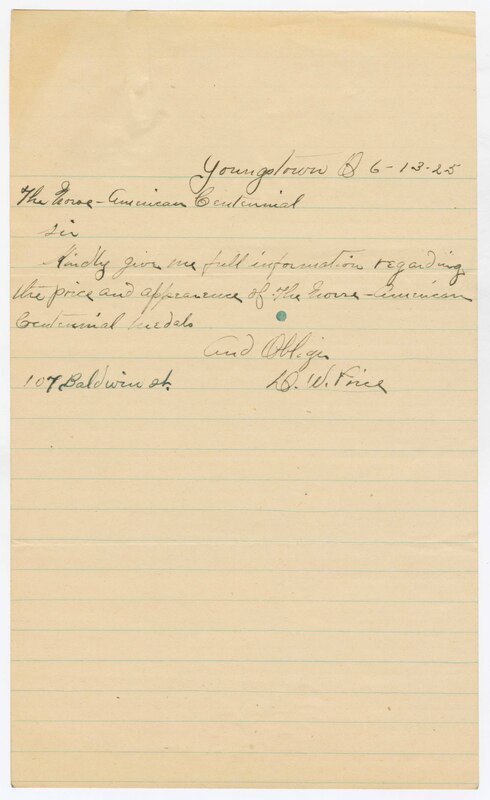 Youngstown O 6-13-25
The Norse-American Centennial
Sir
Kindly give me full information regarding
the price and appearence of The Norse-American
Centennial medals
And Oblige
107 Baldwin st. D. W. Price